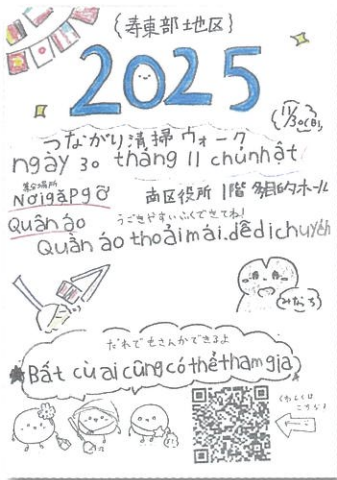 {寿東部地区}
2025
11/30(日)
つながり清掃ウォーク
ngày 30 tháng 11 chủ nhật
集合場所
Nơi gặp gỡ 南区役所 1階 多目的ホール
Quần áo うごきやすいふくできてね!
Quần áo thoải mái.dễ di chuyển
みなっち
だれでもさんかできるよ
★Bất cứ ai cũng có thể tham gia
くわしくは
こちら